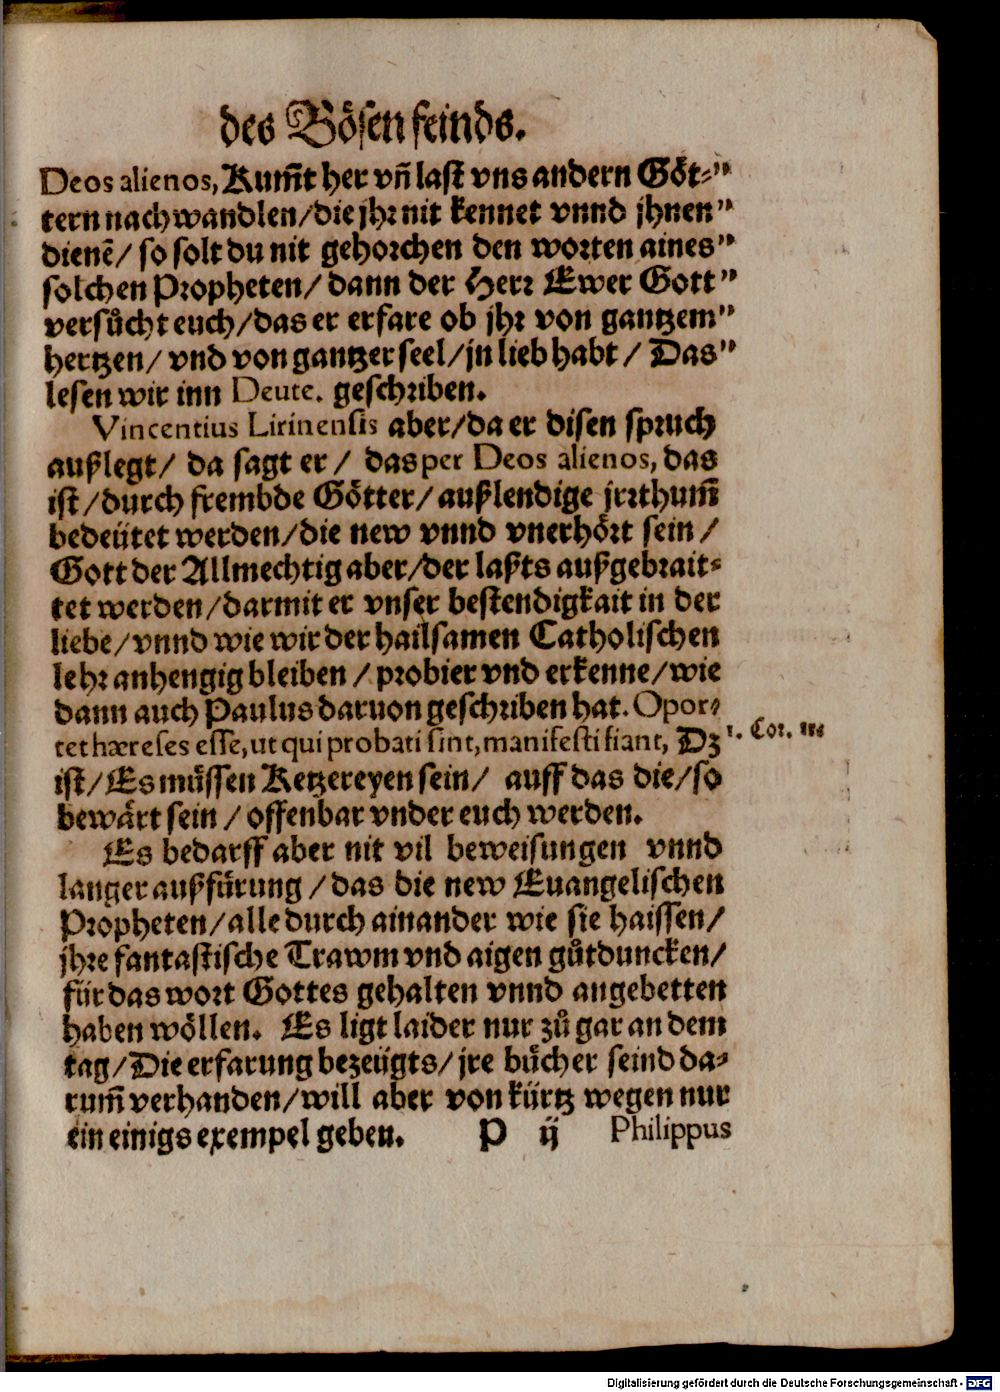 des Bösen feinds.
Deos alienos, Kum̃t her vñ last vns andern Göt⸗"
tern nach wandlen/die jhr nit kennet vnnd jhnen"
dienẽ/ so solt du nit gehorchen den worten aines"
solchen Propheten/ dann der Herr Ewer Gott"
versůcht euch/das er erfare ob jhr von gantzem"
hertzen/ vnd von gantzer seel/jn lieb habt/ Das"
lesen wir inn Deute. geschriben.
Vincentius Lirinensis aber/da er disen spruch
außlegt/ da sagt er/ das per Deos alienos, das
ist/durch frembde Götter/außlendige jrrthum̃
bedeütet werden/die new vnnd vnerhört sein/
Gott der Allmechtig aber/der laßts außgebrait⸗
tet werden/darmit er vnser bestendigkait in der
liebe/vnnd wie wir der hailsamen Catholischen
lehr anhengig bleiben/probier vnd erkenne/wie
dann auch Paulus daruon geschriben hat. Opor⸗
tet hæreses esse, ut qui probati sint, manifesti fiant, Dz 1. Cor. 11
ist/Es müssen Ketzereyen sein/ auff das die/so
bewärt sein/offenbar vnder euch werden.
Es bedarff aber nit vil beweisungen vnnd
langer außfürung/das die new Euangelischen
Propheten/alle durch ainander wie sie haissen/
jhre fantastische Trawm vnd aigen gůtduncken/
für das wort Gottes gehalten vnnd angebetten
haben wöllen. Es ligt laider nur zů gar an dem
tag/Die erfarung bezeügts/jre bücher seind da⸗
rum̃ verhanden/will aber von kürtz wegen nur
ein einigs exempel geben. P ij Philippus
Digitalisierung gefördert durch die Deutsche Forschungsgemeinschaft - DFG